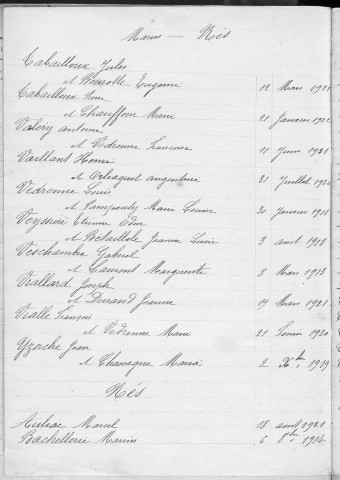 Maries — Nés
Tabailloux Jules
et Bourotte Eugenie 12 Mars 1921
Tabailloux
et Chauffour Marie 21 Janvier 1922
Valéry Antoine
et Vedrenne Francoise 11 Juin 1921
Vaillant Henri
et Orliaguet Augustine 31 Juillet 1920
Vedrenne Louis
et Marie Louise 20 Janvier 1918
Veyssiere Etienne Edm
et Betaillole Jeanne Lucie 3 aout 1918
Veschambre Gabriel
et Laurent Marguerite 8 Mars 1913
Viallard Joseph
et Durand Jeanne 19 Mars 1921
Vialle François
et Vedrenne Marie 21 1920
Yzorche Jean
et Chanagne Maria 2 Xbre 1919
Nés
Auliac Marcel 18 aout 1921
Bachellerie Marius 6 8bre 1914